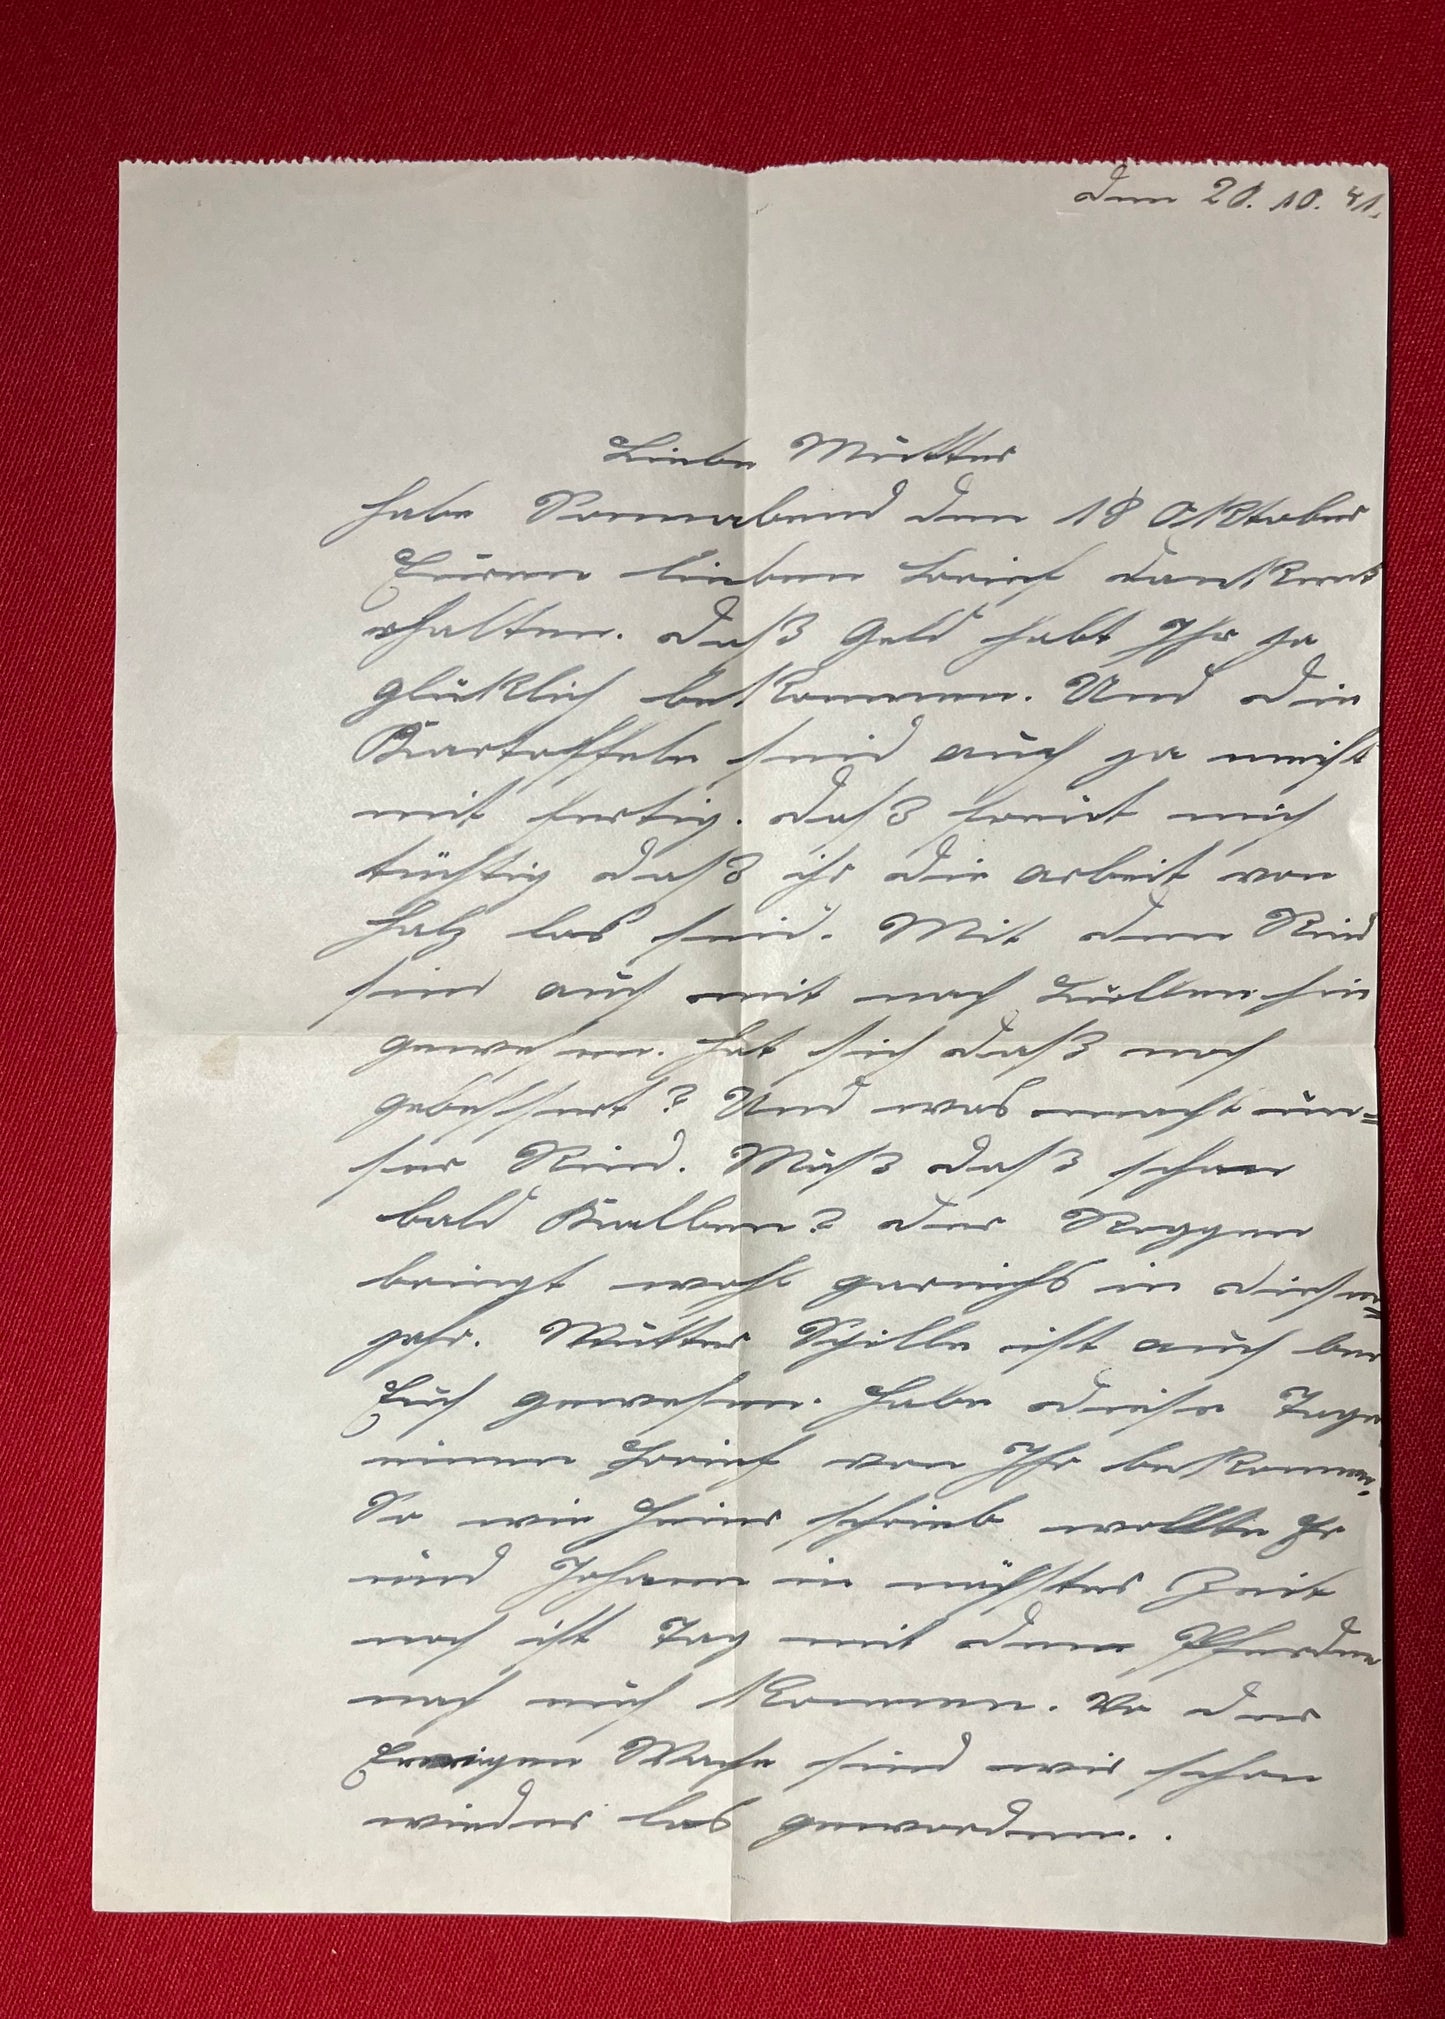 den 20. 10. 41.
Liebe Mutter
habe Sonnabend den 18 Oktober
Euren lieben Brief dankend
erhalten. Daß Geld habt Ihr ja
glücklich bekommen. Und die
Kartoffeln seid auch ja meist
mit fertig. Daß freut mich
tüchtig daß ihr die arbeit von
Halz los seid. Mit den Rind
sind auch mit nach hin
gewesen. Hat sich daß noch
gebessert? Und was macht un=
ser Rind. Muß daß schon
bald Kalben? Der Roggen
bringt woht garnichs in diesen=
jahr. Mutter Schille ist auch bei
Euch gewesen. Habe diese Tage
einen Brief von Ihr bekommen.
So wie Heiner schrieb wollte Er
und Johann in nächster Zeit
noch ist Tag mit den Pferden
nach euch kommen. Vo der
Wache sind wir schon
wieder los geworden. .